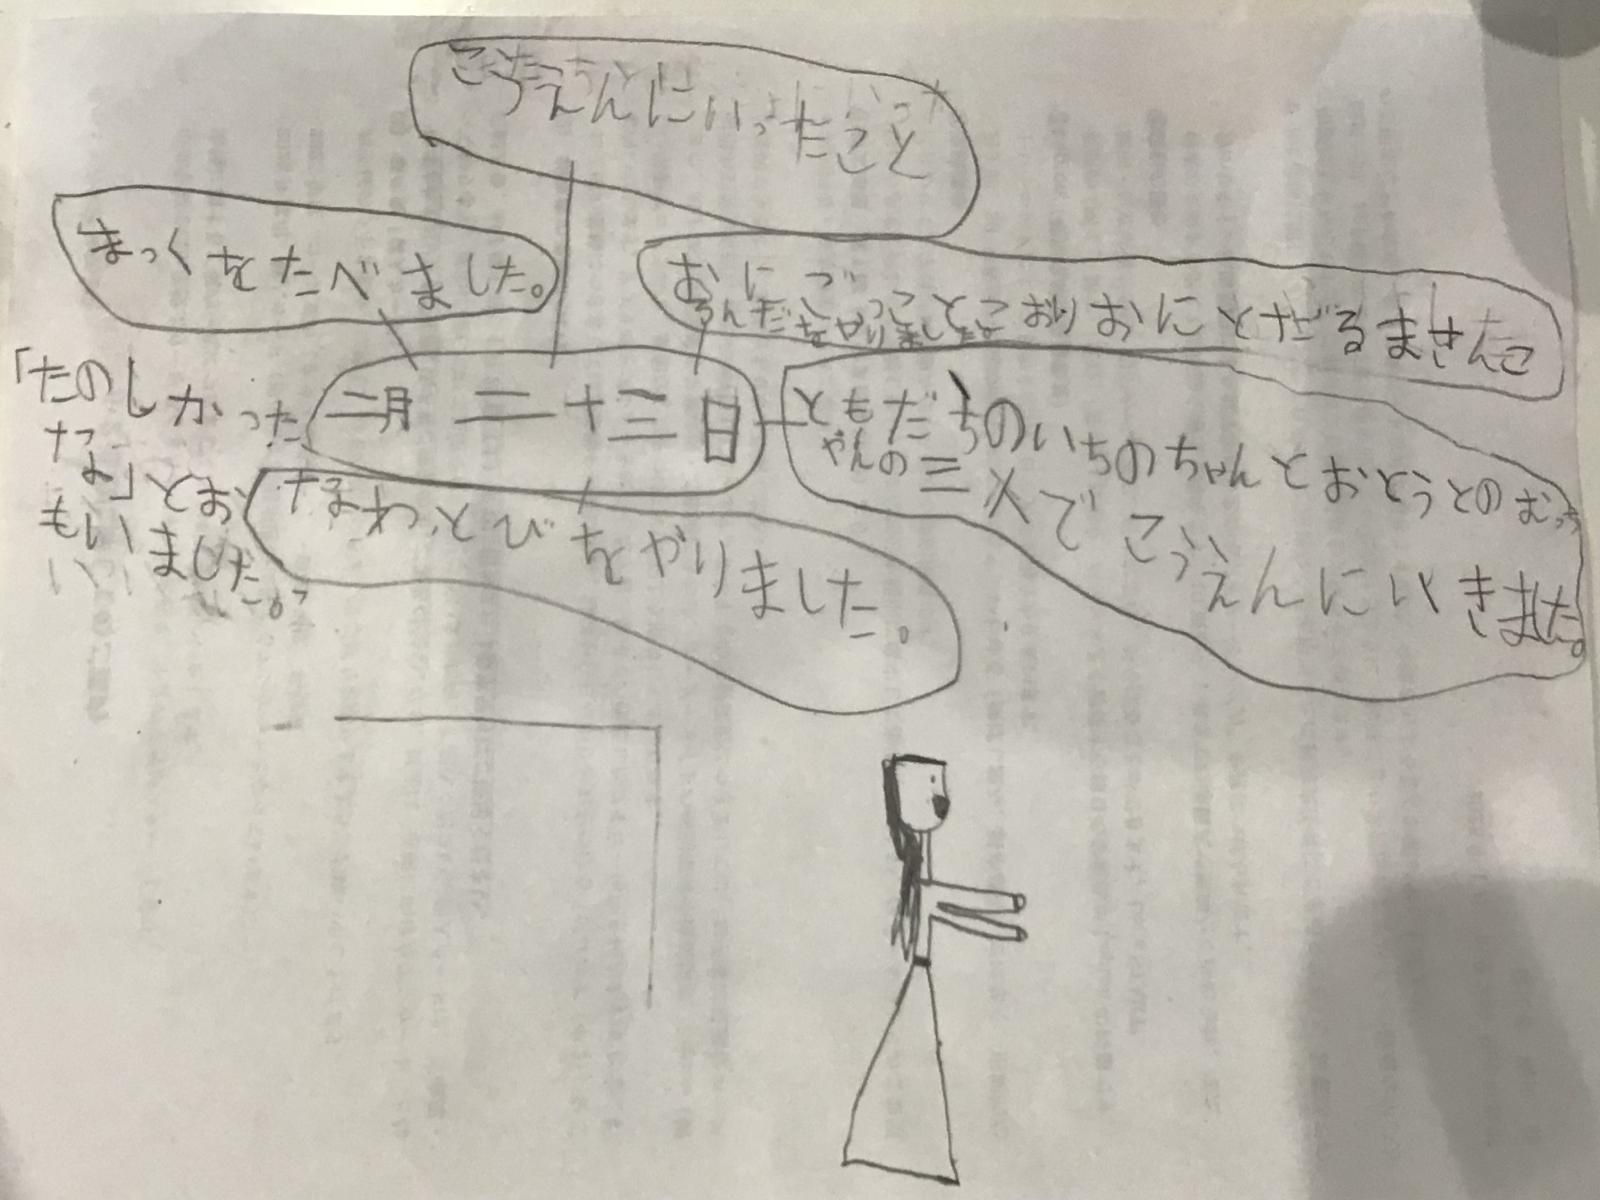 こうえんにいったこと
まっくをたべました。
おにごっことこおりおにとざるまさんこ
ろんだをやりました
二月 二十三日
ともだちのいちのちゃんとおとうとのむっち
ゃんの三人でこうえんにいきました。
なわとびをやりました。
「たのしかった
なよ」とお
もいました。